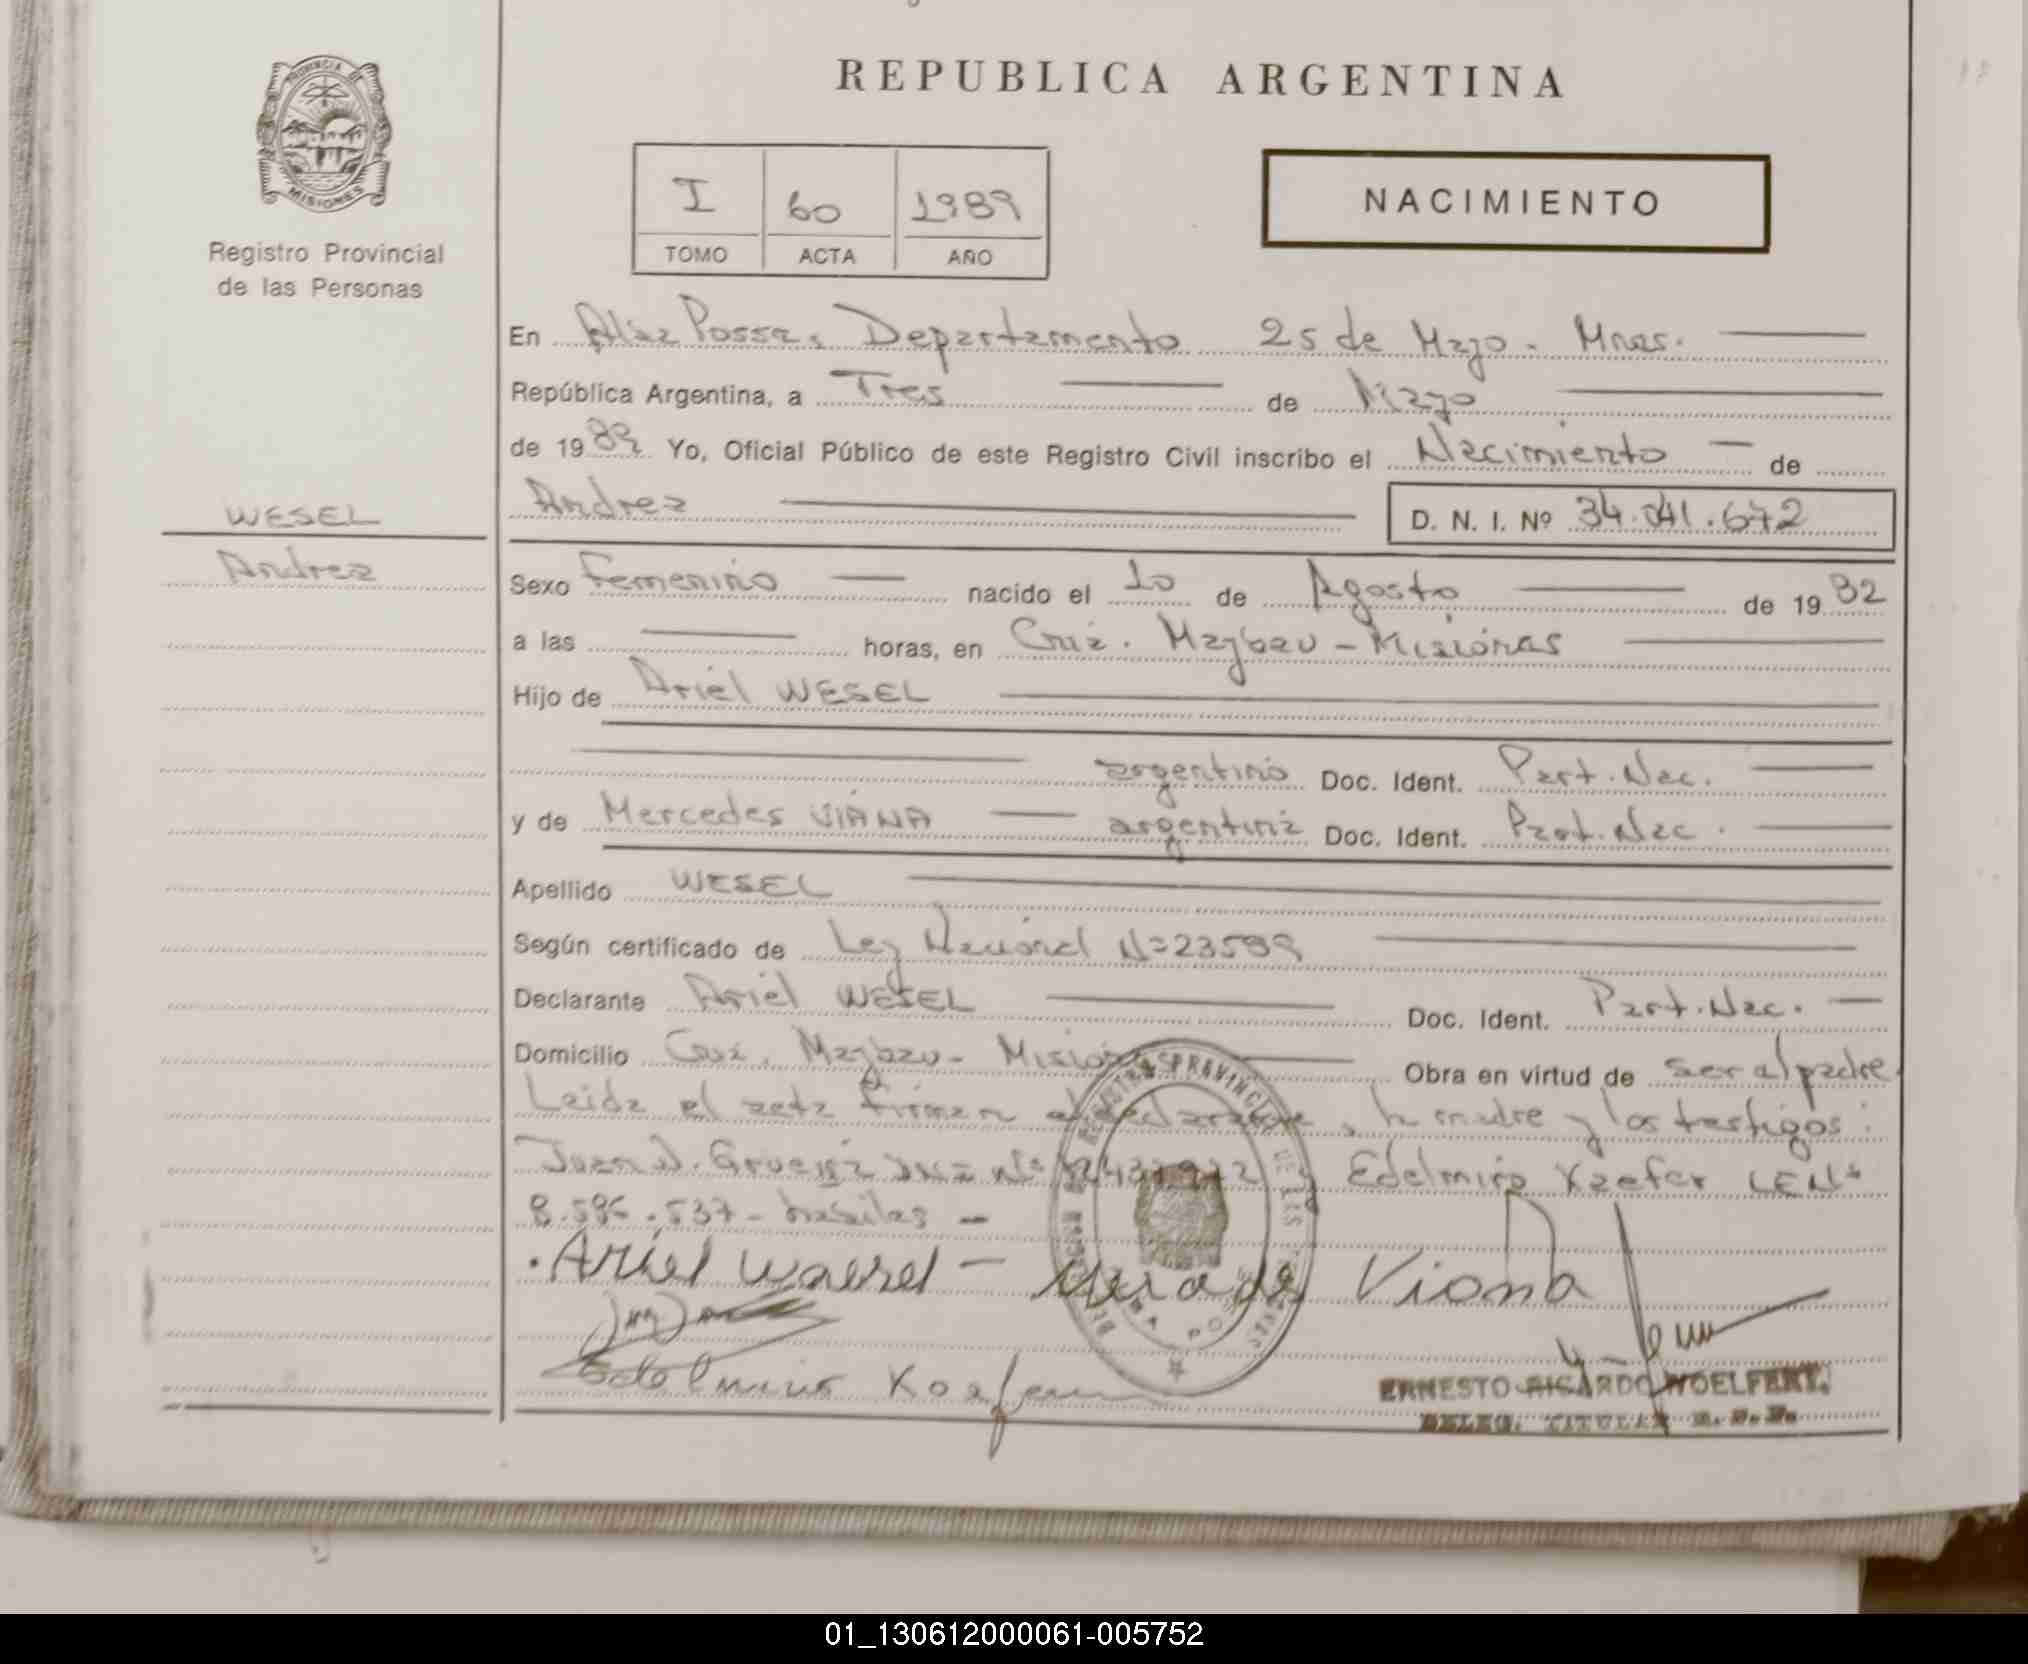 PROVINCIA DE
MISIONES
Registro Provincial
de las Personas
WESEL
Andrea
REPUBLICA ARGENTINA
I 60 1989
TOMO ACTA AÑO
NACIMIENTO
En Alba Posse, Departamento 25 de Mayo - Mnes.
República Argentina, a Tres de Mayo
de 1989 Yo, Oficial Público de este Registro Civil inscribo el Nacimiento de
Andrea D. N. I. Nº 34.041.672
Sexo Femenino nacido el 10 de Agosto de 1982
a las horas, en Cruz. Maybau - Misiones
Hijo de Ariel WESEL
argentino Doc. Ident. Part. Nac.
y de Mercedes VIANA argentina Doc. Ident. Part. Nac.
Apellido WESEL
Según certificado de Ley Nacional N= 23599
Declarante Ariel WESEL Doc. Ident. Part. Nac.
Domicilio Cruz. Maybau - Doc. Obra en virtud de ser al padre.
Leida el acta firman el declarante, la madre y los testigos:
Juan Nº Edelmiro Kaefer LE Nº
8.586.537 - habiles -
Ariel Waesel - Viana
Edelmiro Kaefer
ERNESTO RICARDO WOELFERT.
DELEG. TITULAR R. P. P.
01_130612000061-005752